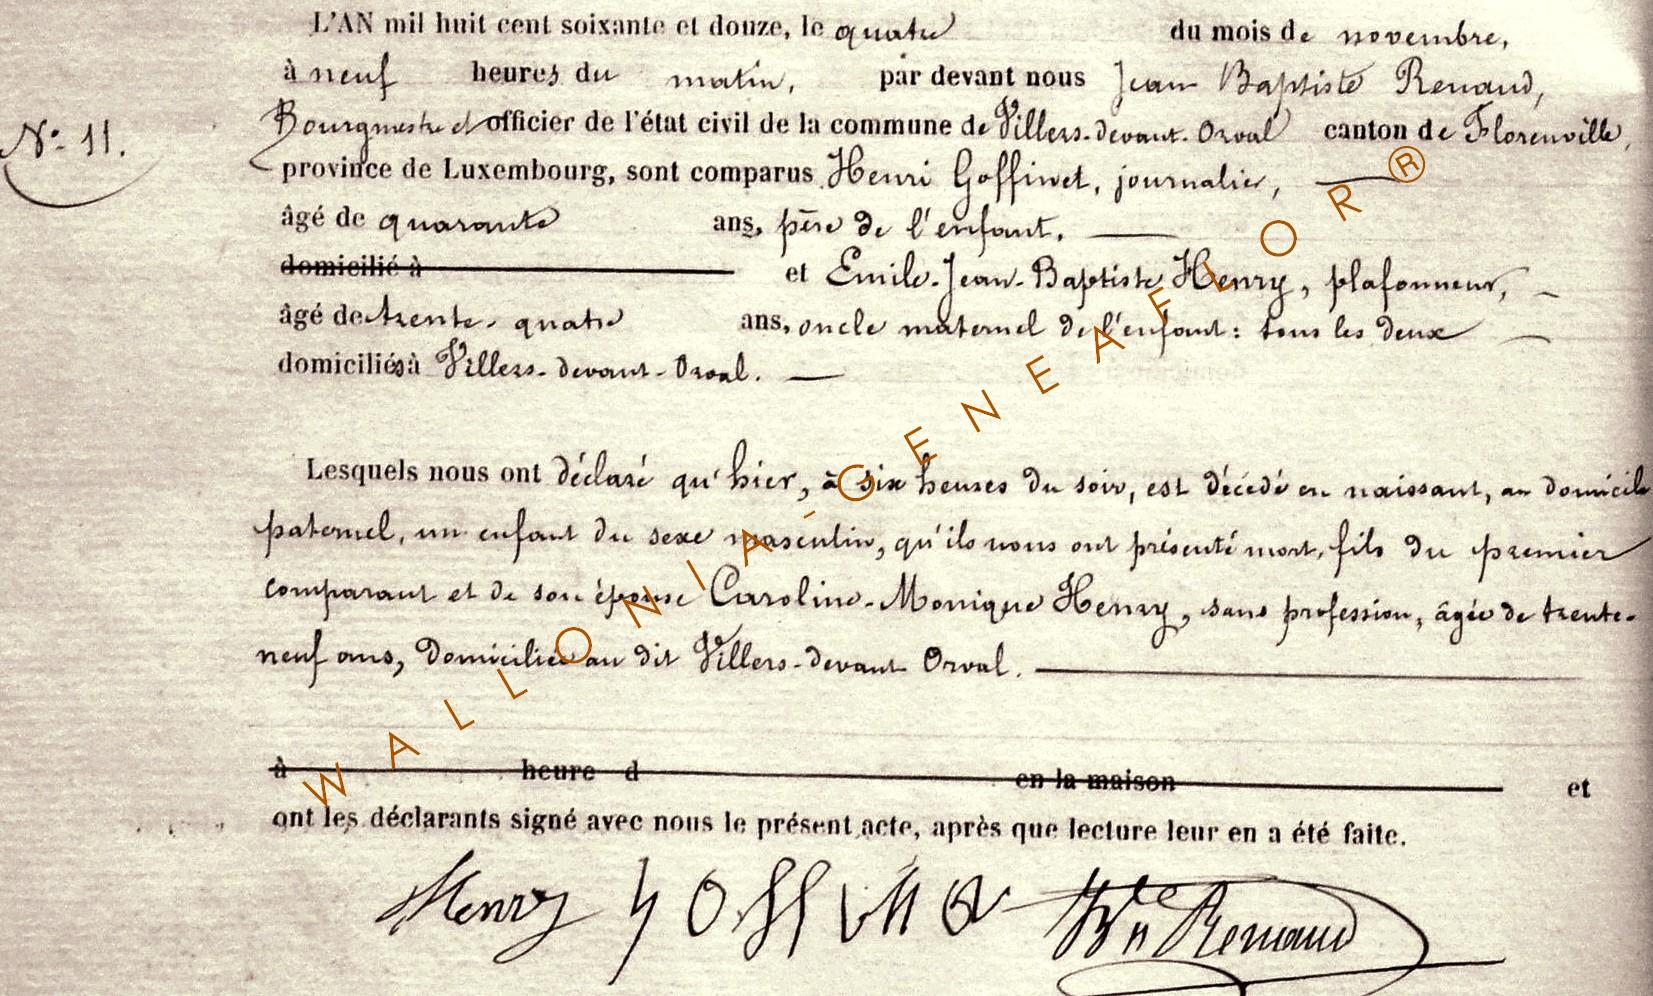 L'AN mil huit cent soixante et douze, le quatre du mois de novembre,
à neuf heures du matin, par devant nous Jean Baptiste Renaud,
Bourgmestre et officier de l'état civil de la commune de Villers-devant-Orval canton de Florenville,
N° 11.
province de Luxembourg, sont comparus Henri Goffinet, journalier,
âgé de quarante ans, père de l'enfant.
domicilié à et Emile-Jean-Baptiste Henry, plafonneur,
âgé de trente-quatre ans, oncle maternel de l'enfant : tous les deux
domiciliés à Villers-devant-Orval.
Lesquels nous ont déclaré qu'hier, à six heures du soir, est décédé en naissant, au domicile
paternel, un enfant du sexe masculin, qu'ils nous ont présenté mort, fils du premier
comparant et de son épouse Caroline-Monique Henry, sans profession, âgée de trente-
neuf ans, domiciliée au dit Villers-devant Orval.
à heure d en la maison et
ont les déclarants signé avec nous le présent acte, après que lecture leur en a été faite.
Henry goffinet Bte Renaud
WALLONIA-GENEAFLOR®